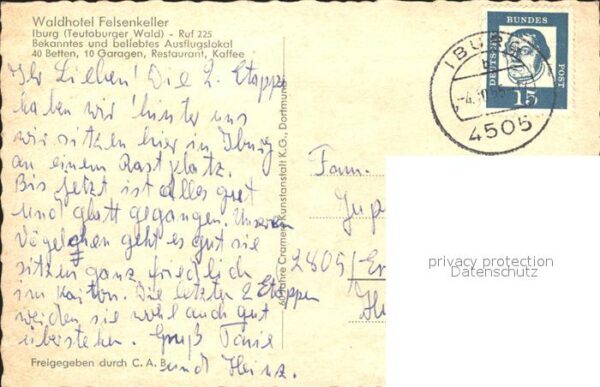 Waldhotel Felsenkeller
Iburg (Teutoburger Wald) - Ruf 225
Bekanntes und beliebtes Ausflugslokal
40 Betten, 10 Garagen, Restaurant, Kaffee
Ihr Lieben! Die 2. Etappe
haben wir hinter uns
wir sitzen hier in Iburg
an einem Rastplatz.
Bis jetzt ist alles gut
und glatt gegangen. Unseren
Vögelchen geht es gut sie
sitzen ganz friedlich
im Karton. Die letzten 2 Etappen
werden sie wohl auch gut
überstehen. Gruß
und Heinz.
Freigegeben durch C. A. B.
Jahre Cramers Kunstanstalt K.G., Dortmund
DEUTSCHE BUNDES POST
15
IBURG
4505
Fam.
2809
privacy protection
Datenschutz